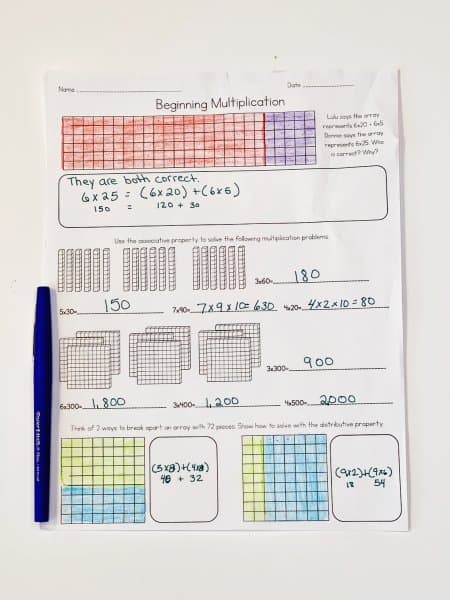 Name
Date
Beginning Multiplication
Lulu says the array
represents 6x20 + 6x5.
Ronnie says the array
represents 6x25. Who
is correct? Why?
They are both correct.
6 x 25 = (6 x 20) + (6 x 5)
150 = 120 + 30
Use the associative property to solve the following multiplication problems.
3x60= 180
5x30= 150 7x90= 7 x 9 x 10 = 630 4x20= 4 x 2 x 10 = 80
3x300= 900
6x300= 1,800 3x400= 1,200 4x500= 2,000
Think of 2 ways to break apart an array with 72 pieces. Show how to solve with the distributive property.
(5x8)+(4x8) (9x2)+(9x6)
40 + 32 18 54